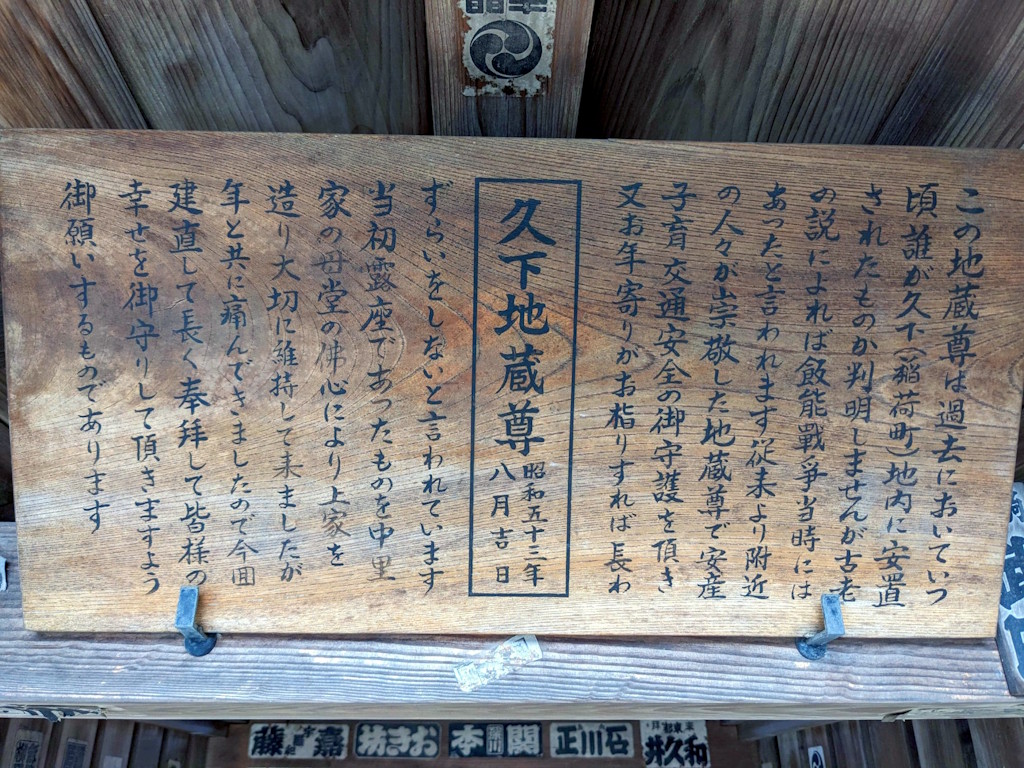 この地蔵尊は過去においていつ
頃誰が久下(稲荷町)地内に安置
されたものか判明しませんが古老
の説によれば飯能戰爭当時には
あったと言われます従来より附近
の人々が崇敬した地蔵尊で安産
子育交通安全の御守護を頂き
又お年寄りがお詣りすれば長わ
久下地蔵尊
昭和五十三年
八月吉日
ずらいをしないと言われています
当初露座であったものを中里
家の母堂の佛心により上家を
造り大切に維持して来ましたが
年と共に痛んできましたので今回
建直して長く奉拝して皆様の
幸せを御守りして頂きますよう
御願いするものであります
嘉藤
おきつ坊
関本
石川正
和久井